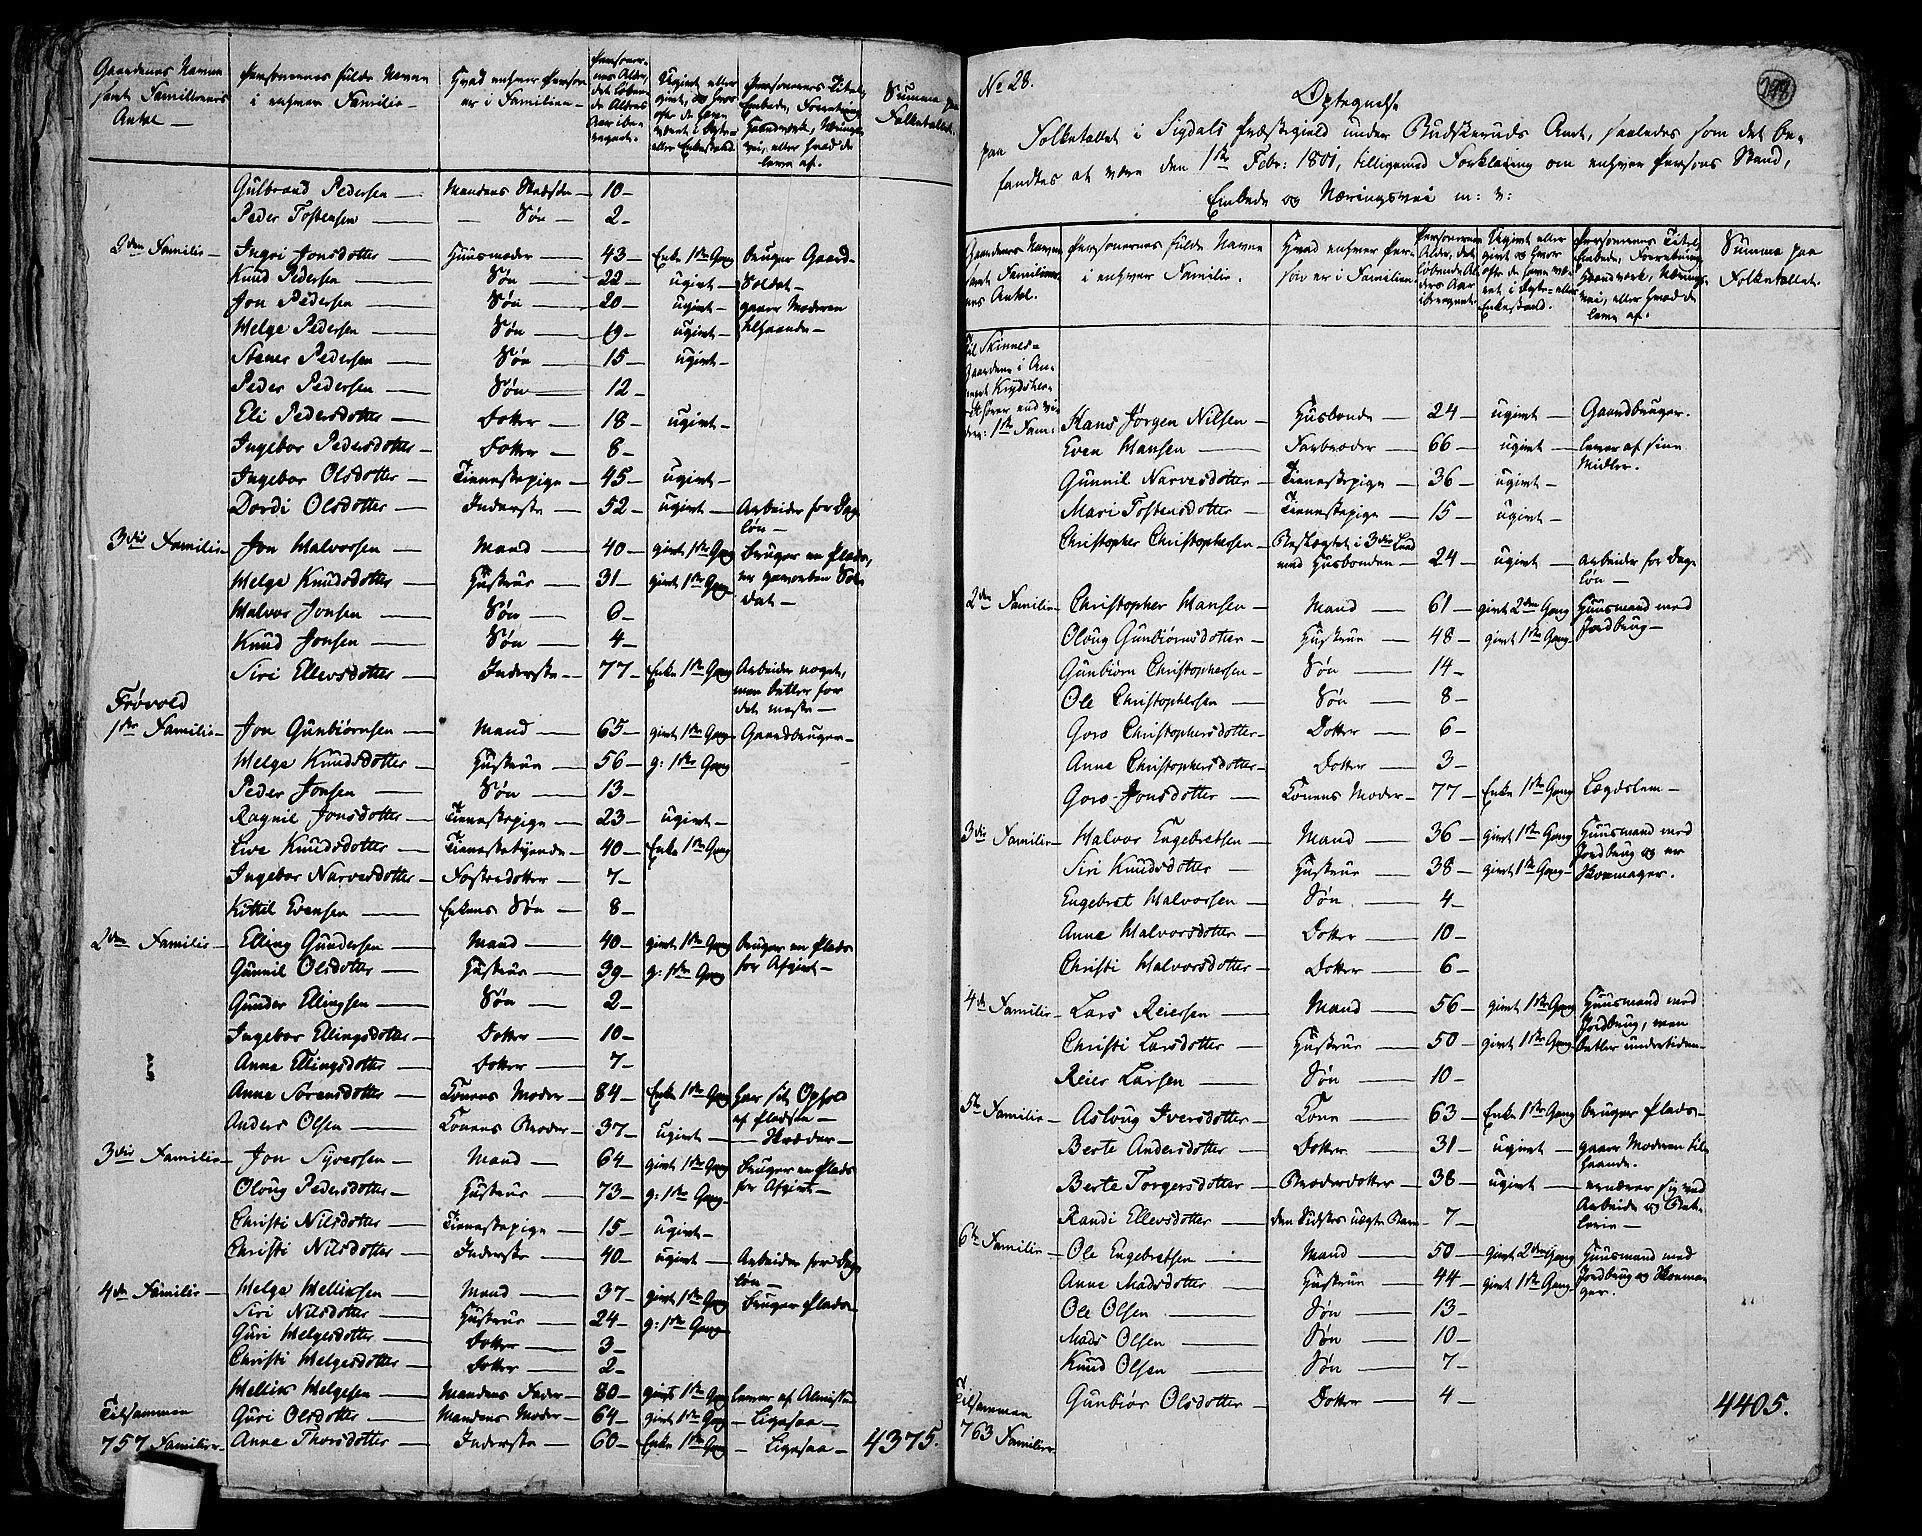 Gaardenes Navne samt Familiernes Antal — | Personernes fulde Navne i enhver Familie — | Hvad enhver Person er i Familien — | Personernes Alder, det løbende Alders Aar iberegnet — | Ugivt eller givt, og hvor ofte de have været i Ægte- eller Enkestand | Personernes Titel, Embede, Forretning, Haandværk, Næringsvei, eller hvad de leve af. | Summa paa Folketallet.
Gulbrand Pedersen | Mandens Stedsøn — | 10 —
Peder Tostensen — | — Søn — | 2 —
2den Familie — | Ingri Jonsdotter — | Huusmoder — | 43 — | Enke 1ste Gang | bruger Gaard —
Knud Pedersen | Søn — | 22 — | ugivt — | Soldat —
Jon Pedersen | Søn — | 20 — | ugivt — | gaaer Moderen
Helge Pedersen | Søn — | 19 — | ugivt — | tilhaande —
Stener Pedersen — | Søn — | 15 — | ugivt —
Peder Pedersen — | Søn — | 12 —
Eli Pedersdotter — | Dotter — | 18 — | ugivt —
Ingebor Pedersdotter — | Dotter — | 8 —
Ingebor Olsdotter — | Tienestepige — | 45 — | ugivt —
Dordi Olsdotter — | Inderste — | 52 — | ugivt — | Arbeider for Dagløn —
3die Familie — | Jon Halvorsen — | Mand — | 40 — | givt 1ste Gang | bruger en Plads,
Helge Knudsdotter — | Hustrue — | 31 — | givt 1ste Gang | er gevorben Soldat —
Halvor Jonsen — | Søn — | 6 —
Knud Jonsen — | Søn — | 4 —
Siri Ellevsdotter — | Inderste — | 77 — | Enke 1ste Gang | Arbeider noget, men betler for det meste —
Frövold
1ste Familie — | Jon Gunbiörnsen — | Mand — | 65 — | givt 1ste Gang | Gaardbruger —
Helge Knudsdotter — | Hustrue — | 56 — | g: 1ste Gang
Peder Jonsen — | Søn — | 13 —
Ragnil Jonsdotter — | Tienestepige — | 23 — | ugivt —
Live Knudsdotter — | Tienestetyende — | 40 — | Enke 1ste Gang
Ingebor Narvesdotter — | Fosterdotter — | 7 —
Kittil Evensen — | Enkens Søn — | 8 —
2den Familie — | Elling Gundersen — | Mand — | 40 — | givt 1ste Gang | bruger en Plads
Gunnil Olsdotter — | Hustrue — | 39 — | g: 1ste Gang | for Afgivt —
Gunder Ellingsen — | Søn — | 2 —
Ingebor Ellingsdotter — | Dotter — | 10 —
Anne Ellingsdotter — | Dotter — | 7 —
Anne Sörensdotter — | Konens Moder — | 84 — | Enke 1ste Gang | har sit Ophold af Pladsen —
Anders Olsen — | Konens Broder — | 37 — | ugivt — | — Skræder —
3die Familie — | Jon Syversen — | Mand — | 64 — | givt 1ste Gang | bruger en Plads
Oloug Pedersdotter — | Hustrue — | 73 — | g: 1ste Gang | for Afgivt —
Christi Nilsdotter — | Tienestepige — | 15 — | ugivt —
Christi Nilsdotter — | Inderste — | 40 — | ugivt — | Arbeider for Dagløn —
4de Familie — | Helge Helliksen — | Mand — | 37 — | givt 1ste Gang | Bruger Plads —
Siri Nilsdotter — | Hustrue — | 24 — | g: 1ste Gang
Guri Helgesdotter — | Dotter — | 3 —
Christi Helgesdotter — | Dotter — | 2 —
Hellik Helgesen — | Mandens Fader — | 80 — | givt 1ste Gang | lever af Almisse
Tilsammen | Guri Olsdotter — | Mandens Moder — | 64 — | givt 1ste Gang | — Ligesaa —
757 Familier — | Anne Thorsdotter — | Inderste — | 60 — | Enke 1ste Gang | — Ligesaa — | 4375.
No 28.
Optegnelse
paa Folketallet i Sigdals Præstegield under Budskeruds Amt, saaledes som det be-
fandtes at være den 1ste Febr: 1801, tilligemed Forklaring om enhver Persons Stand,
Embede og Næringsvei m: v:
Gaardenes Navne samt Familiernes Antal. | Personernes fulde Navne i enhver Familie. | Hvad enhver Person er i Familien. | Personernes Alder, det løbende Alders Aar iberegnet. | Ugivt eller givt og hvor ofte de have været i Ægte- eller Enkestand. | Personernes Titel, Embede, Forretning, Haandværk, Næringsvei, eller hvad de leve af. | Summa paa Folketallet.
Til Skinnes-
gaardene i An-
next Krydshe-
red hører end vi-
dre: 1ste Fam: | Hans Jörgen Nilsen — | Husbonde — | 24 — | ugivt — | Gaardbruger.
Even Hansen — | Farbroder — | 66 — | ugivt — | lever af sine Midler.
Gunnil Narvesdotter — | Tienestepige — | 36 — | ugivt —
Mari Tostensdotter — | Tienestepige — | 15 — | ugivt —
Christopher Christophersen — | Beslægtet i 3die Leed med Husbonden — | 24 — | ugivt — | arbeider for Dagløn —
2den Familie — | Christopher Hansen — | Mand — | 61 — | givt 2den Gang | Huusmand med
Oloug Gunbiörnsdotter — | Hustrue — | 48 — | givt 1ste Gang | Jordbrug —
Gunbiörn Christophersen — | Søn — | 14 —
Ole Christophersen — | Søn — | 8 —
Goro Christophersdotter — | Dotter — | 6 —
Anne Christophersdotter — | Dotter — | 3 —
Goro Jonsdotter — | Konens Moder — | 77 — | Enke 1ste Gang | Lægdslem —
3die Familie — | Halvor Engebretsen — | Mand — | 36 — | givt 1ste Gang | Huusmand med
Siri Knudsdotter — | Hustrue — | 38 — | givt 1ste Gang — | Jordbrug og er Skomager.
Engebret Halvorsen — | Søn — | 4 —
Anne Halvorsdotter — | Dotter — | 10 —
Christi Halvorsdotter — | Dotter — | 6 —
4de Familie — | Lars Reiersen — | Mand — | 56 — | givt 1ste Gang | Huusmand med
Christi Larsdotter — | Hustrue — | 50 — | givt 1ste Gang | Jordbrug, men betler undertiden —
Reier Larsen — | Søn — | 10 —
5te Familie — | Asloug Iversdotter — | Kone — | 63 — | Enke 1ste Gang | bruger Plads —
Berte Andersdotter — | Dotter — | 31 — | ugivt — | gaaer Moderen tilhaande.
Berte Torgersdotter — | Broderdotter — | 38 — | ugivt — | ernærer sig ved Arbeide og Betlerie —
Randi Ellevsdotter — | den Sidstes uægte Barn — | 7 —
6te Familie — | Ole Engebretsen — | Mand — | 50 — | givt 2den Gang | Huusmand med
Anne Madsdotter — | Hustrue — | 44 — | givt 1ste Gang | Jordbrug og Skomager.
Ole Olsen — | Søn — | 13 —
Mads Olsen — | Søn — | 10 —
Knud Olsen — | Søn — | 7 —
Tilsammen 763 Familier — | Gunbiör Olsdotter — | Dotter — | 4 — | 4405.